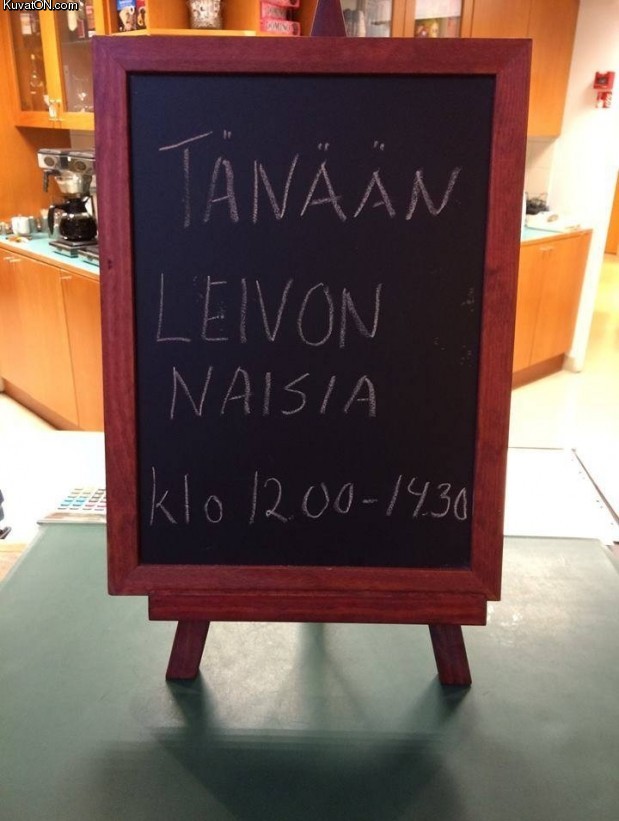 KuvatON.com
TÄNÄÄN
LEIVON
NAISIA
klo 12.00-14.30